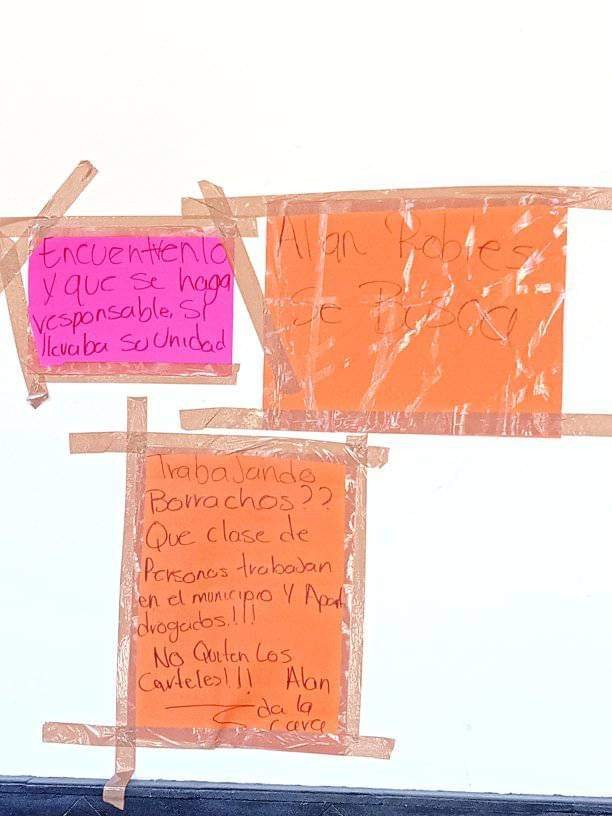 Encuentrenlo
y que se haga
responsable, Si
llevaba su Unidad
Allan Robles
Se Busca
Trabajando
Borrachos??
Que clase de
Personas trabajan
en el municipio Y Apart
drogados!!!
No Quiten Los
Carteles!!! Alan
da la
cara